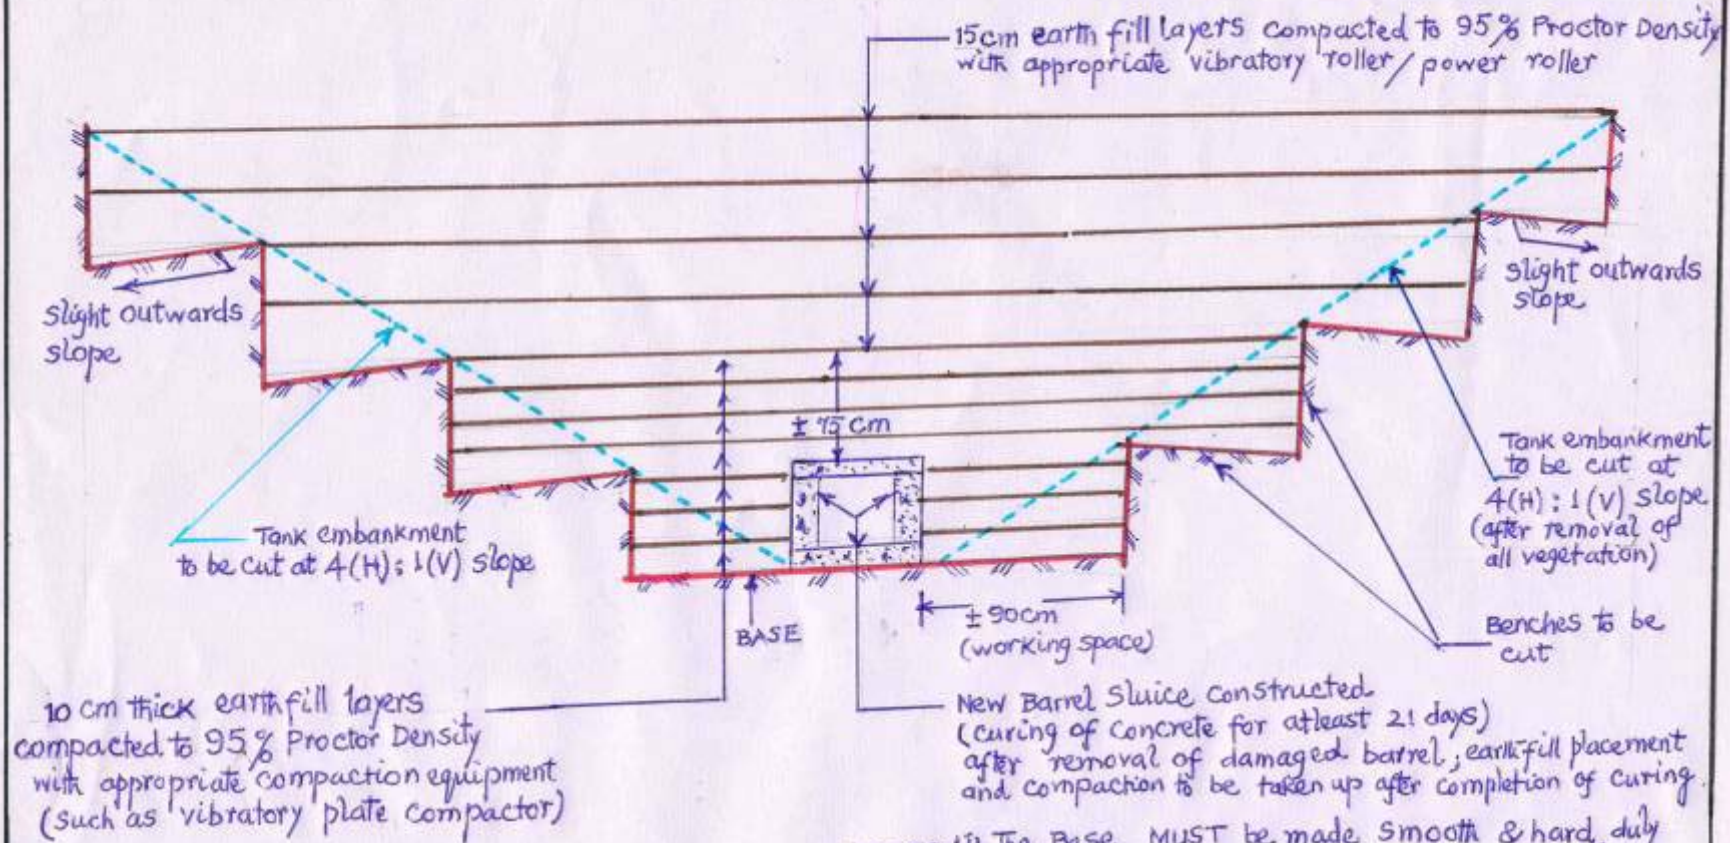 15cm earth fill layers compacted to 95% Proctor Density
with appropriate vibratory roller/power roller
slight outwards
slope
slight outwards
slope
± 75 cm
Tank embankment
to be cut at 4(H): 1(V) slope
Tank embankment
to be cut at
4(H): 1(V) slope
(after removal of
all vegetation)
BASE
± 90cm
(working space)
Benches to be
cut
10 cm thick earthfill layers
compacted to 95% Proctor Density
with appropriate compaction equipment
(such as vibratory plate compactor)
New Barrel Sluice constructed
(curing of concrete for atleast 21 days)
after removal of damaged barrel; earthfill placement
and compaction to be taken up after completion of curing.
The Base MUST be made smooth & hard duly